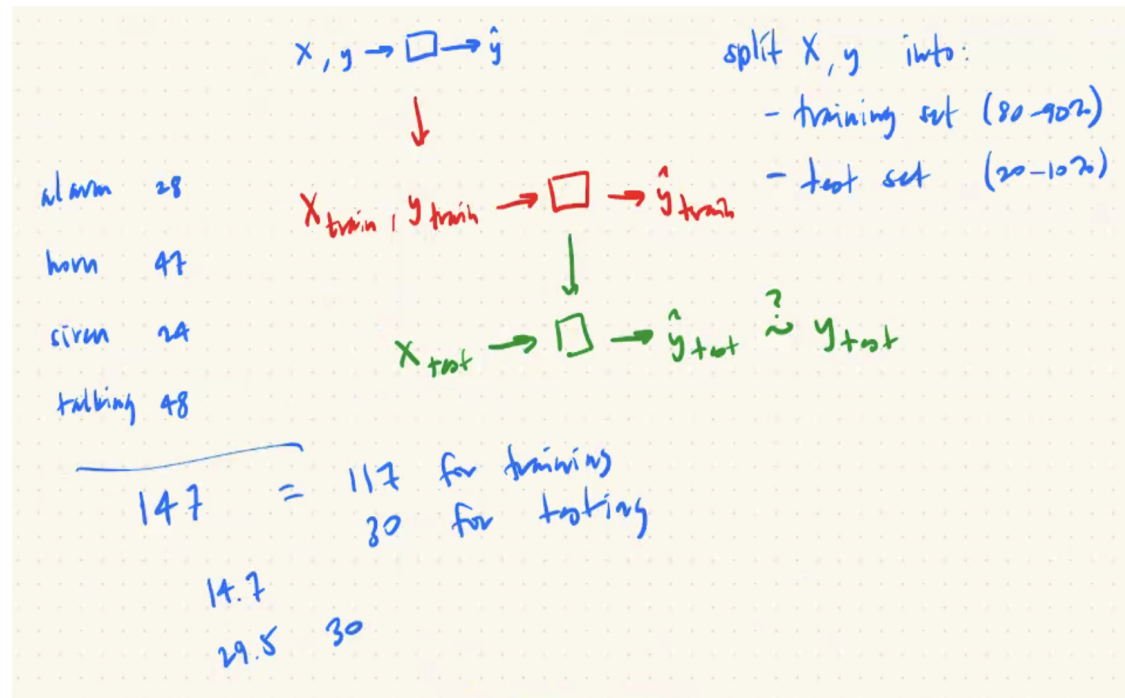 x, y → □ → ŷ
split X, y into:
- training set (80-90%)
- test set (20-10%)
X train, y train → □ → ŷ train
X test → □ → ŷ test ?~ y test
alarm 28
horn 47
siren 24
talking 48
147 = 117 for training
30 for testing
14.7
29.5 30